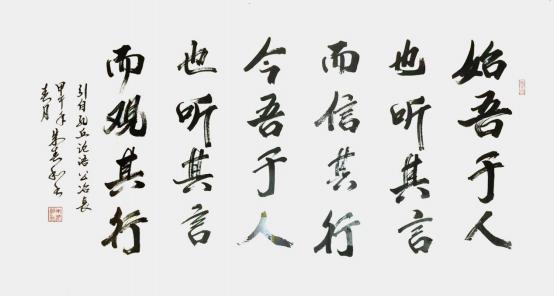 始吾于人
也听其言
而信其行
今吾于人
也听其言
而观其行
引自孔丘论语公冶长
甲午年
春月